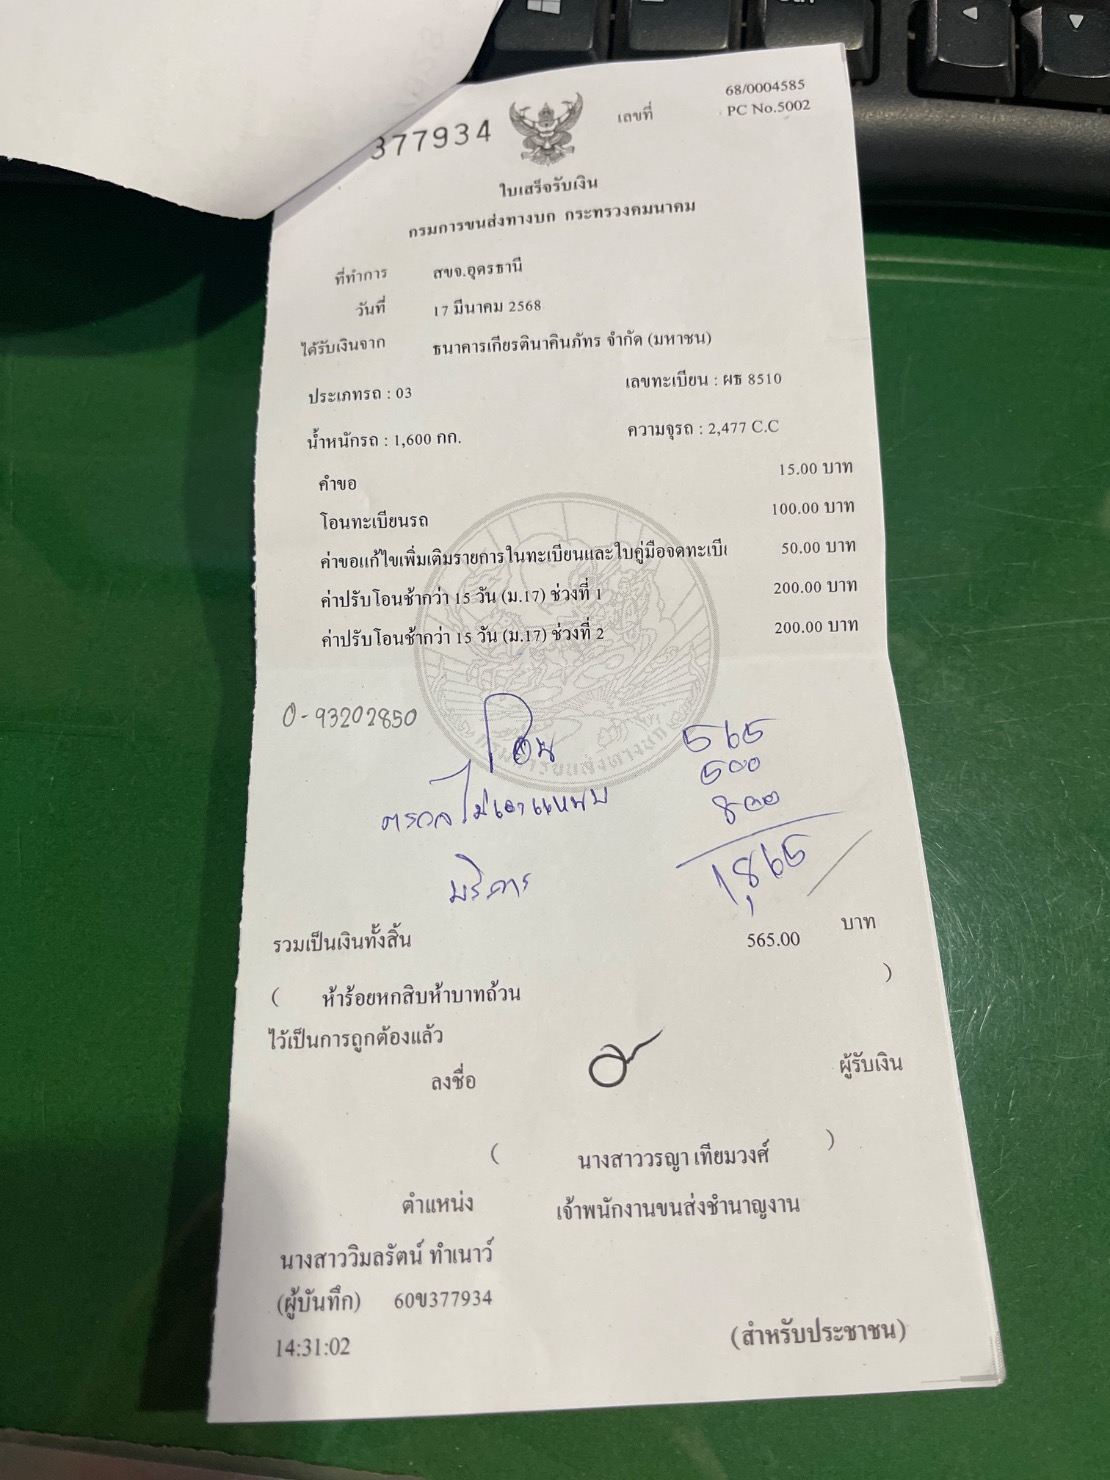 68/0004585
377934 เลขที่ PC No.5002
ใบเสร็จรับเงิน
กรมการขนส่งทางบก กระทรวงคมนาคม
ที่ทำการ สขจ.อุดรธานี
วันที่ 17 มีนาคม 2568
ได้รับเงินจาก ธนาคารเกียรตินาคินภัทร จำกัด (มหาชน)
ประเภทรถ : 03 เลขทะเบียน : ผธ 8510
น้ำหนักรถ : 1,600 กก. ความจุรถ : 2,477 C.C
คำขอ 15.00 บาท
โอนทะเบียนรถ 100.00 บาท
ค่าขอแก้ไขเพิ่มเติมรายการในทะเบียนและใบคู่มือจดทะเบี 50.00 บาท
ค่าปรับโอนช้ากว่า 15 วัน (ม.17) ช่วงที่ 1 200.00 บาท
ค่าปรับโอนช้ากว่า 15 วัน (ม.17) ช่วงที่ 2 200.00 บาท
0-93202850
โอน 565
ตรวจไม่เอาแหนบ 500
800
บริการ 1,865
รวมเป็นเงินทั้งสิ้น 565.00 บาท
( ห้าร้อยหกสิบห้าบาทถ้วน )
ไว้เป็นการถูกต้องแล้ว
ลงชื่อ ผู้รับเงิน
( นางสาววรญา เทียมวงศ์ )
ตำแหน่ง เจ้าพนักงานขนส่งชำนาญงาน
นางสาววิมลรัตน์ ทำเนาว์
(ผู้บันทึก) 60ข377934
14:31:02 (สำหรับประชาชน)